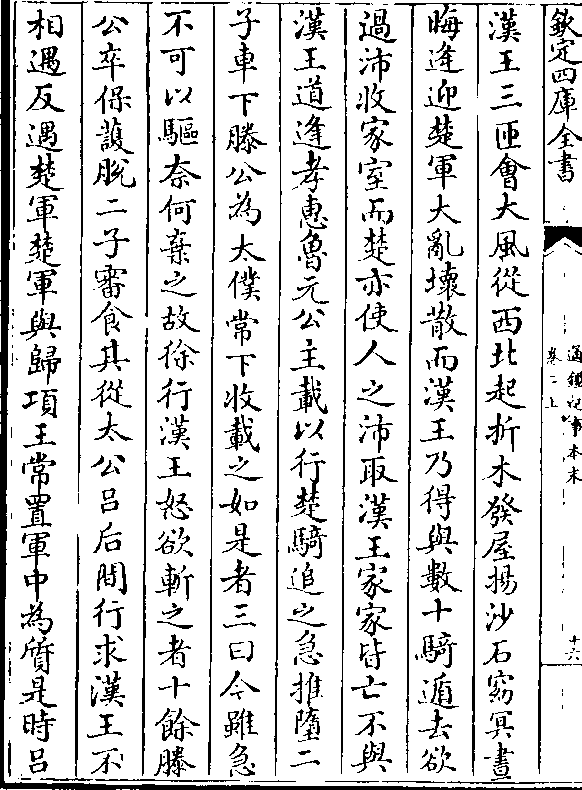 欽定四庫全書
通鑑紀事本末
卷二上
十六
漢王三匝會大風從西北起折木發屋揚沙石窈冥晝
晦逢迎楚軍大亂壞散而漢王乃得與數十騎遁去欲
過沛收家室而楚亦使人之沛取漢王家家皆亡不與
漢王道逢孝惠魯元公主載以行楚騎追之急推墮二
子車下滕公為太僕常下收載之如是者三曰今雖急
不可以驅奈何棄之故徐行漢王怒欲斬之者十餘滕
公卒保護脫二子審食其從太公吕后間行求漢王不
相遇反遇楚軍楚軍與歸項王常置軍中為質是時吕